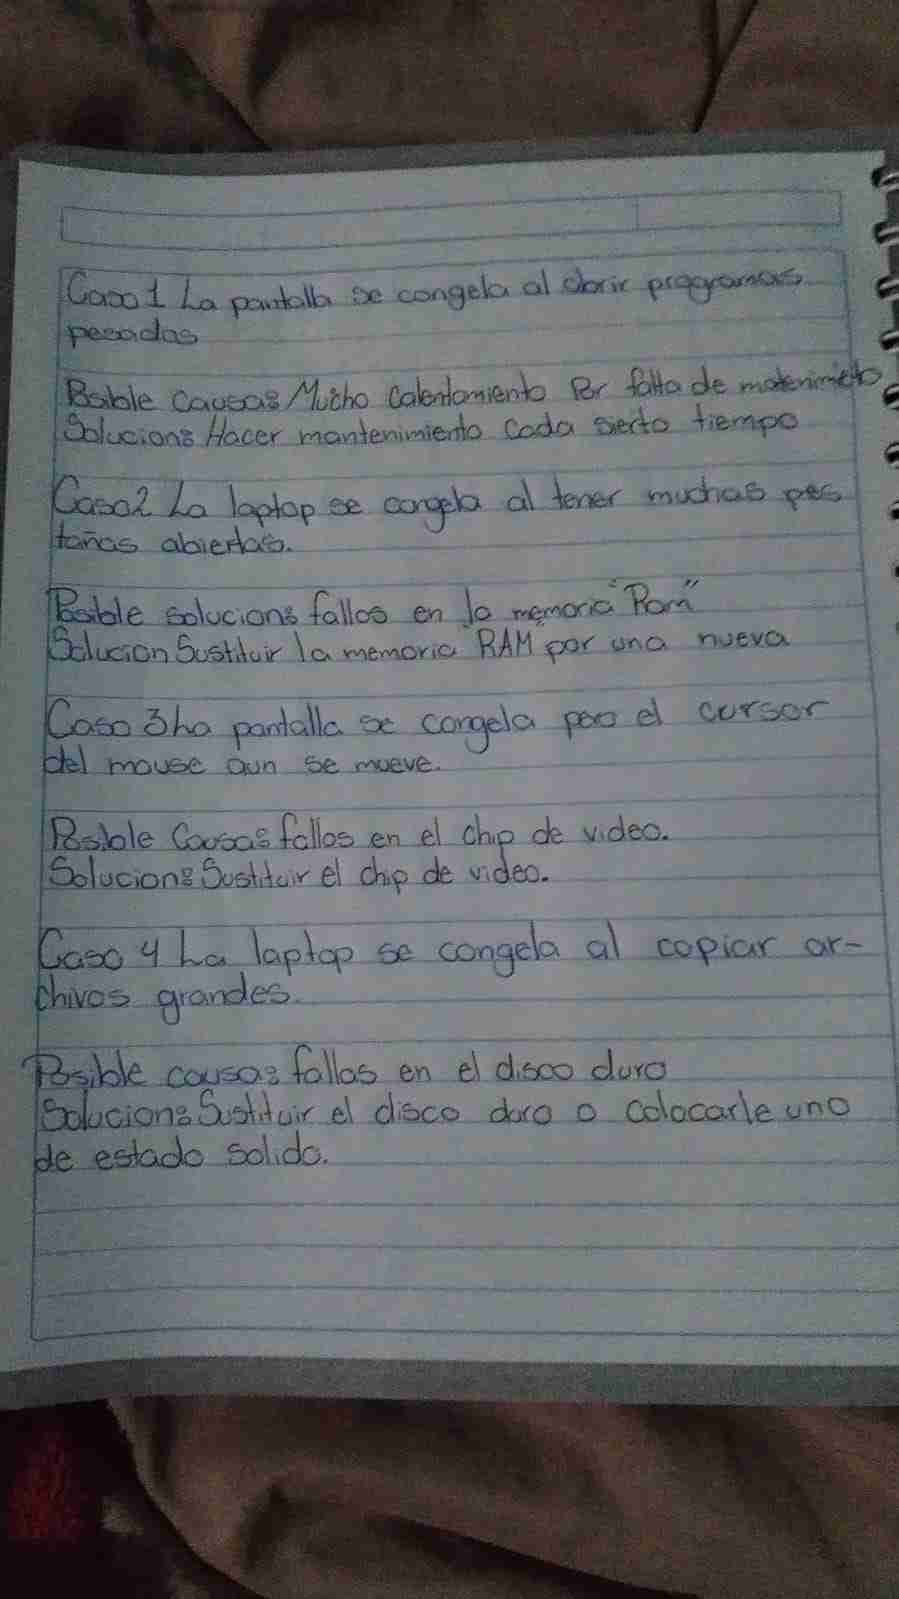 Caso 1 La pantalla se congela al abrir programas
pesadas
Posible causa: Mucho Calentamiento Por falta de matenimieto
Solucion: Hacer mantenimiento Cada sierto tiempo
Caso 2 La laptop se congela al tener muchas pes
tañas abiertas.
Posible solucion: fallos en la memoria "Ram"
Solucion Sustituir la memoria RAM por una nueva
Caso 3 La pantalla se congela pero el cursor
del mouse aun se mueve.
Posible Causa: fallos en el chip de video.
Solucion: Sustituir el chip de video.
Caso 4 La laptop se congela al copiar ar-
chivos grandes.
Posible causa: fallos en el disco duro
Solucion: Sustituir el disco duro o colocarle uno
de estado solido.